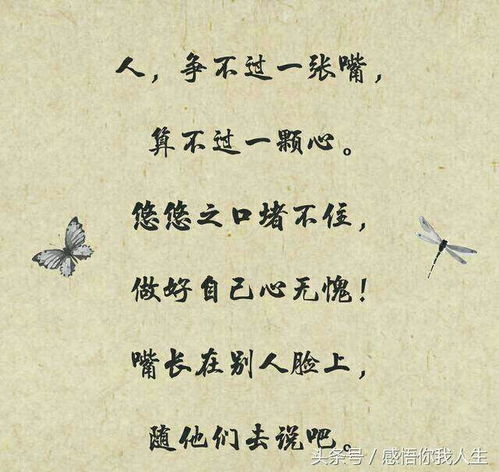 人，争不过一张嘴，
算不过一颗心。
悠悠之口堵不住，
做好自己心无愧！
嘴长在别人脸上，
随他们去说吧。
头条号 / 感悟你我人生